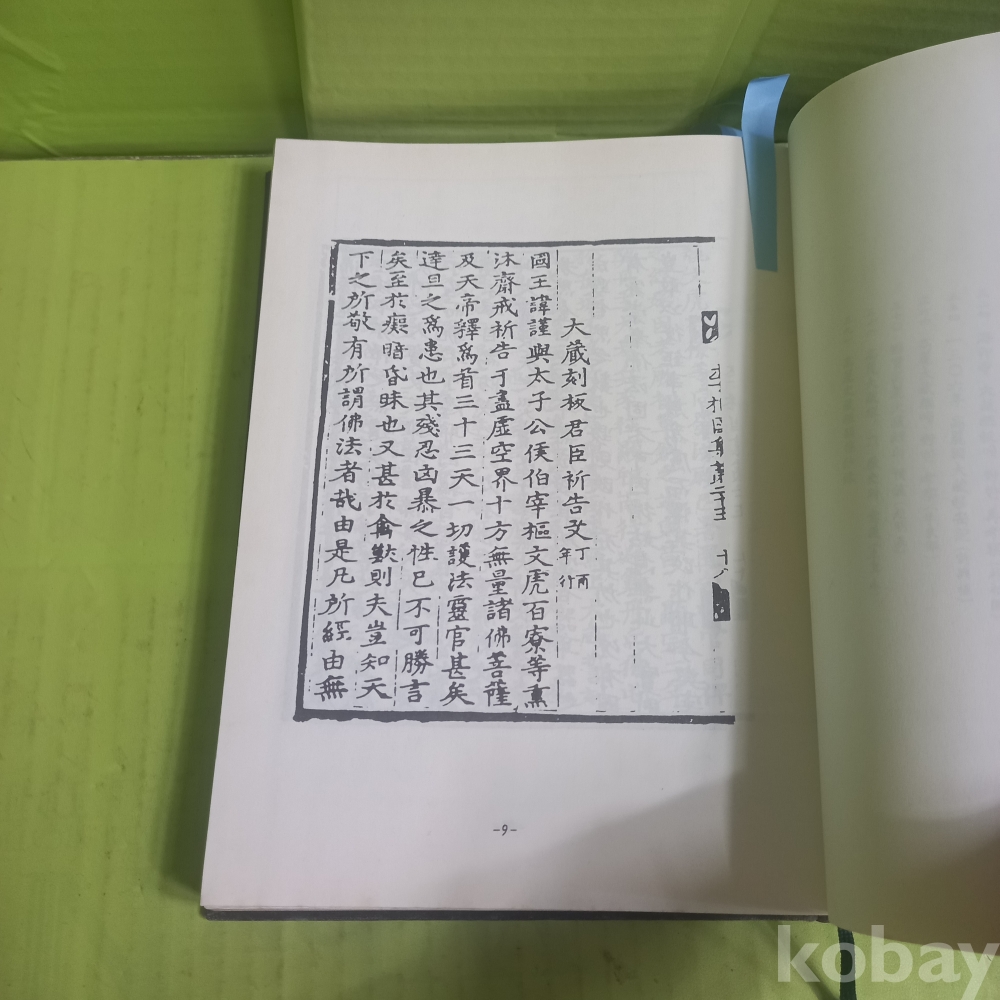 李相國集第二十五 十八
大藏刻板君臣祈告文 丁酉年行
國王諱謹與太子公侯伯宰樞文虎百寮等熏
沐齋戒祈告于盡虛空界十方無量諸佛菩薩
及天帝釋爲首三十三天一切護法靈官甚矣
達旦之爲患也其殘忍凶暴之性已不可勝言
矣至於癡暗昏昧也又甚於禽獸則夫豈知天
下之所敬有所謂佛法者哉由是凡所經由無
-9-
kobay